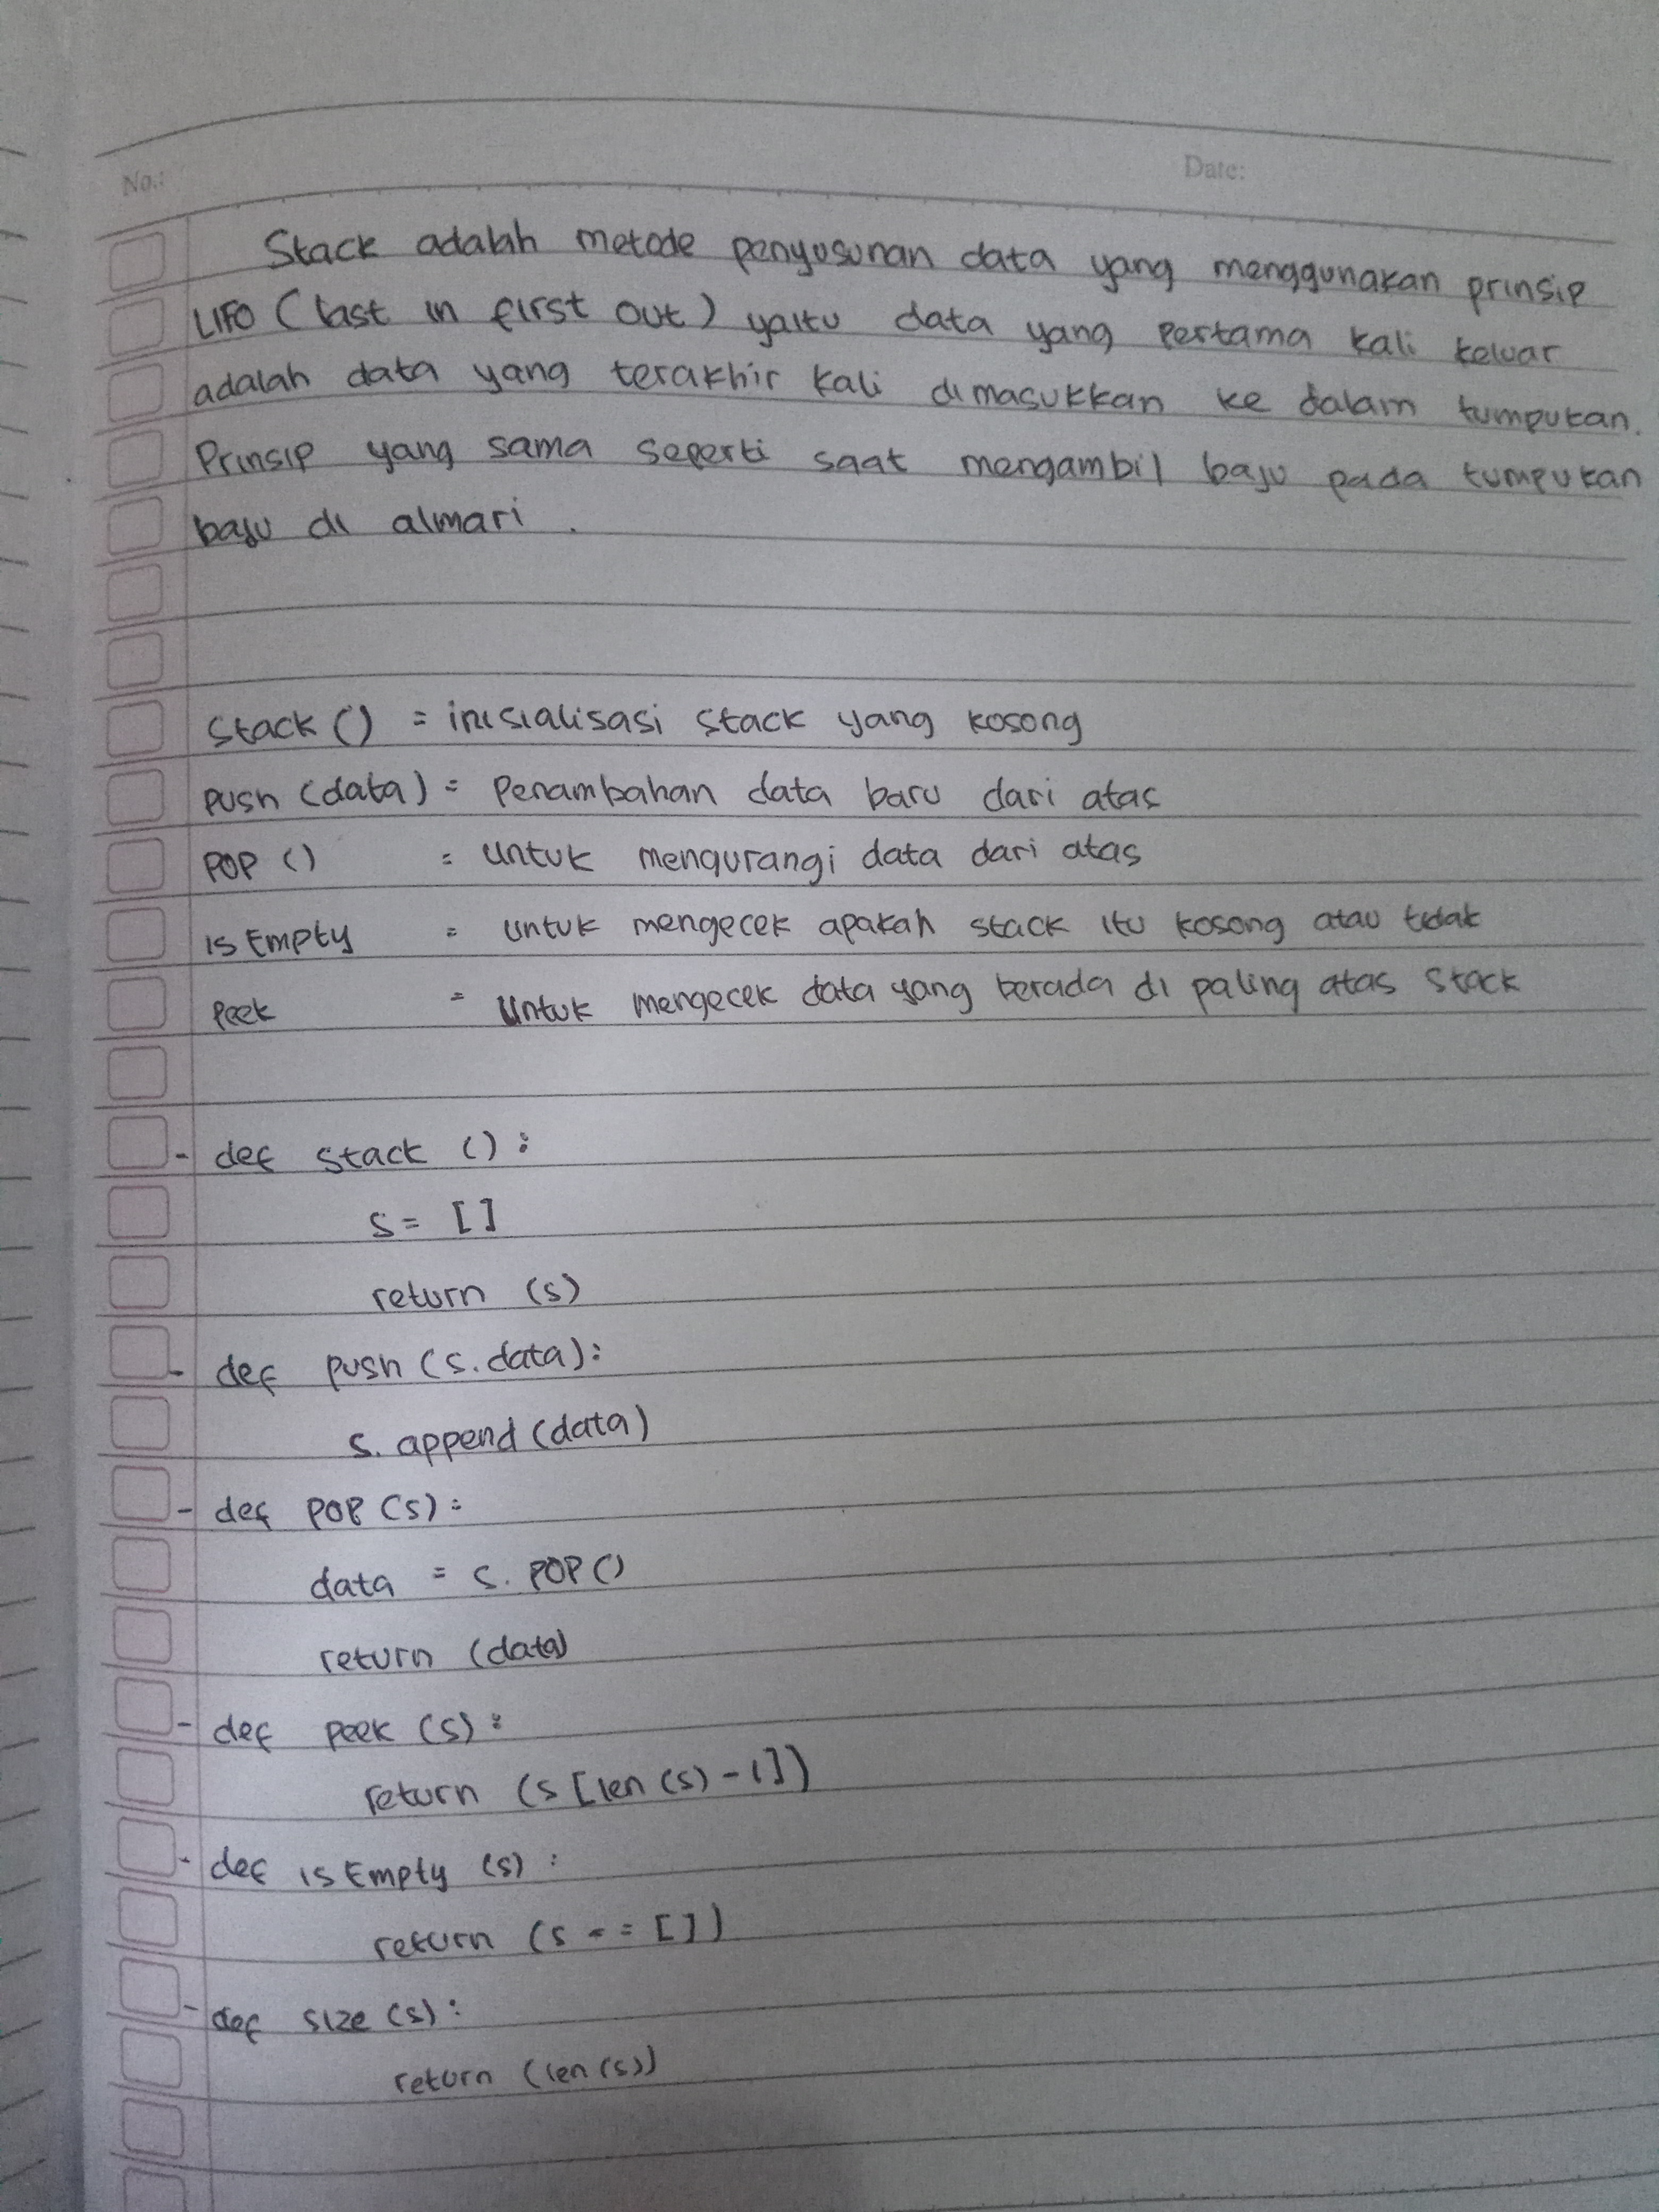 No.:
Date:
Stack adalah metode penyusunan data yang menggunakan prinsip
LIFO (last in first out) yaitu data yang pertama kali keluar
adalah data yang terakhir kali dimasukkan ke dalam tumpukan.
Prinsip yang sama seperti saat mengambil baju pada tumpukan
baju di almari.
Stack () = inisialisasi stack yang kosong
push (data) = Penambahan data baru dari atas
POP () = untuk mengurangi data dari atas
is Empty = untuk mengecek apakah stack itu kosong atau tidak
Peek = Untuk mengecek data yang berada di paling atas stack
- def stack ():
s = []
return (s)
- def push (s.data):
s. append (data)
- def POP (s):
data = s. POP ()
return (data)
- def peek (s):
return (s [len (s) - 1])
- def is Empty (s):
return (s == [])
- def size (s):
return (len (s))